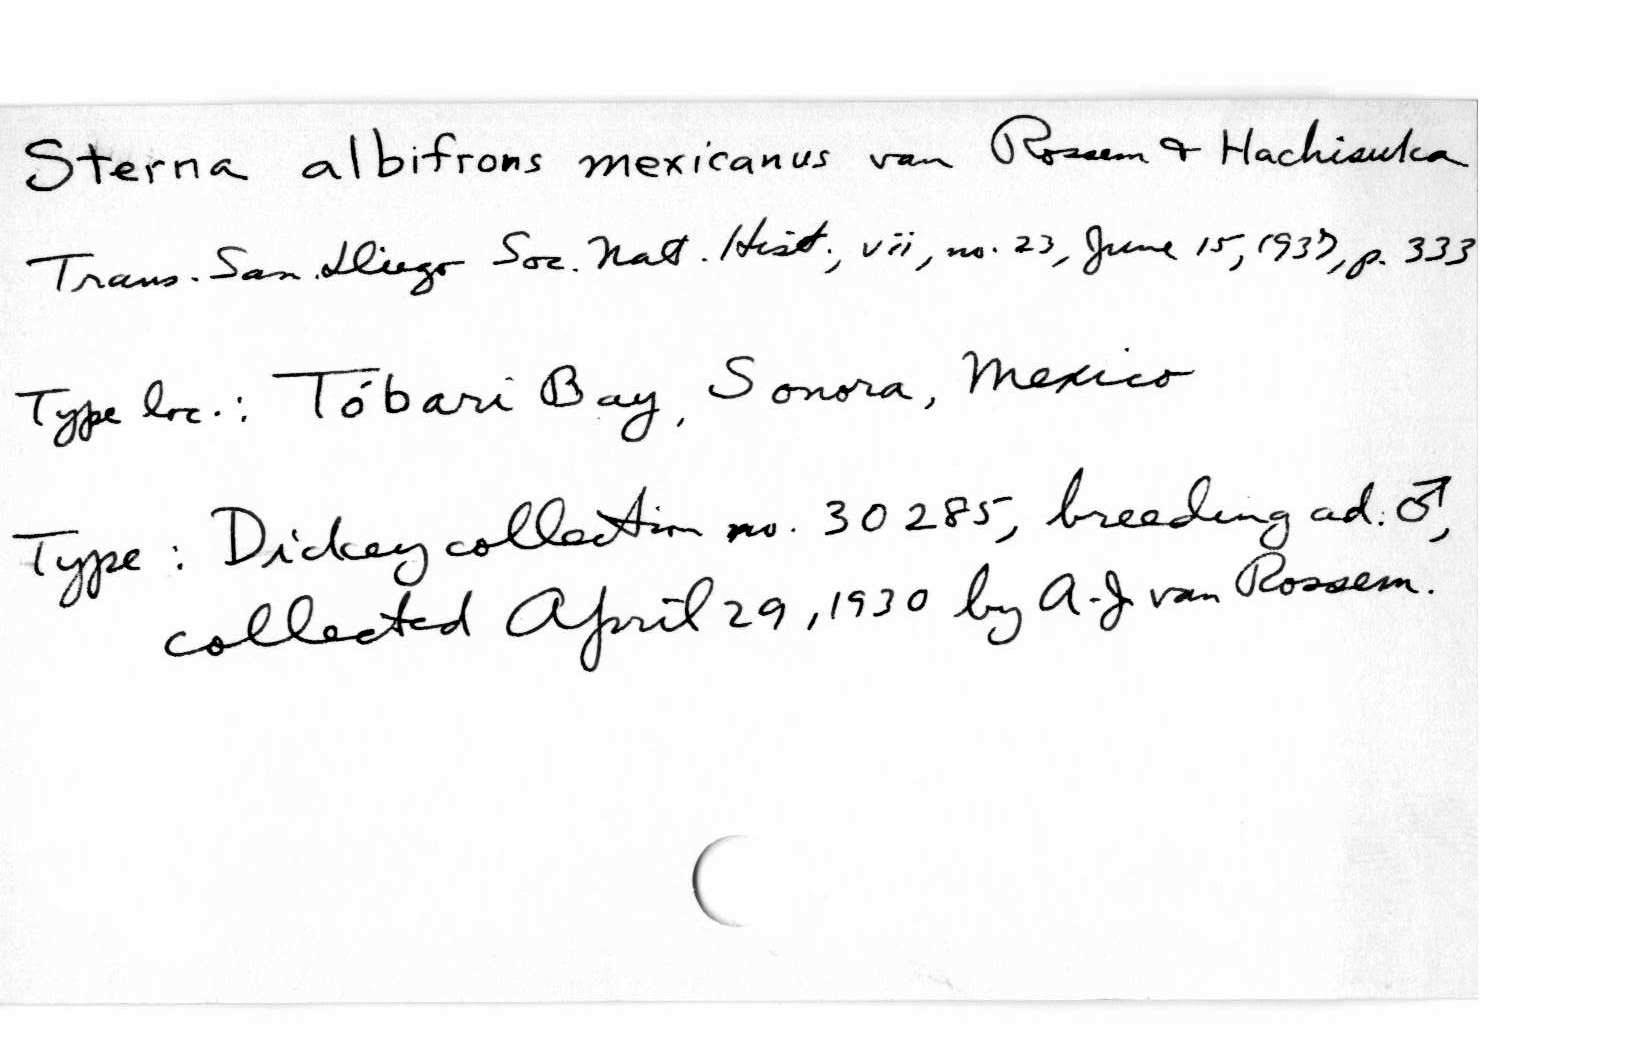 Sterna albifrons mexicanus van Rossem & Hachisuka
Trans. San Diego Soc. Nat. Hist., vii, no. 23, June 15, 1937, p. 333
Type loc.: Tóbari Bay, Sonora, Mexico
Type: Dickey collection no. 30285, breeding ad. ♂,
collected April 29, 1930 by A.J. van Rossem.